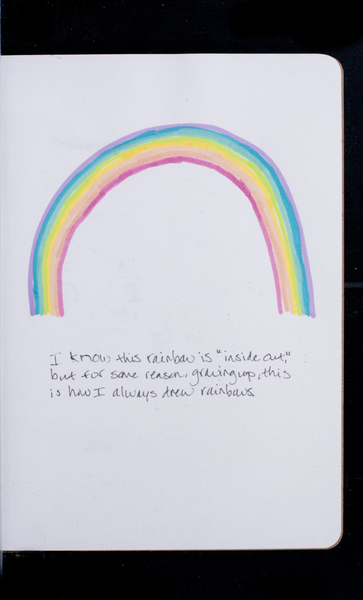 I know this rainbow is "inside out,"
but for some reason, growing up, this
is how I always drew rainbows.